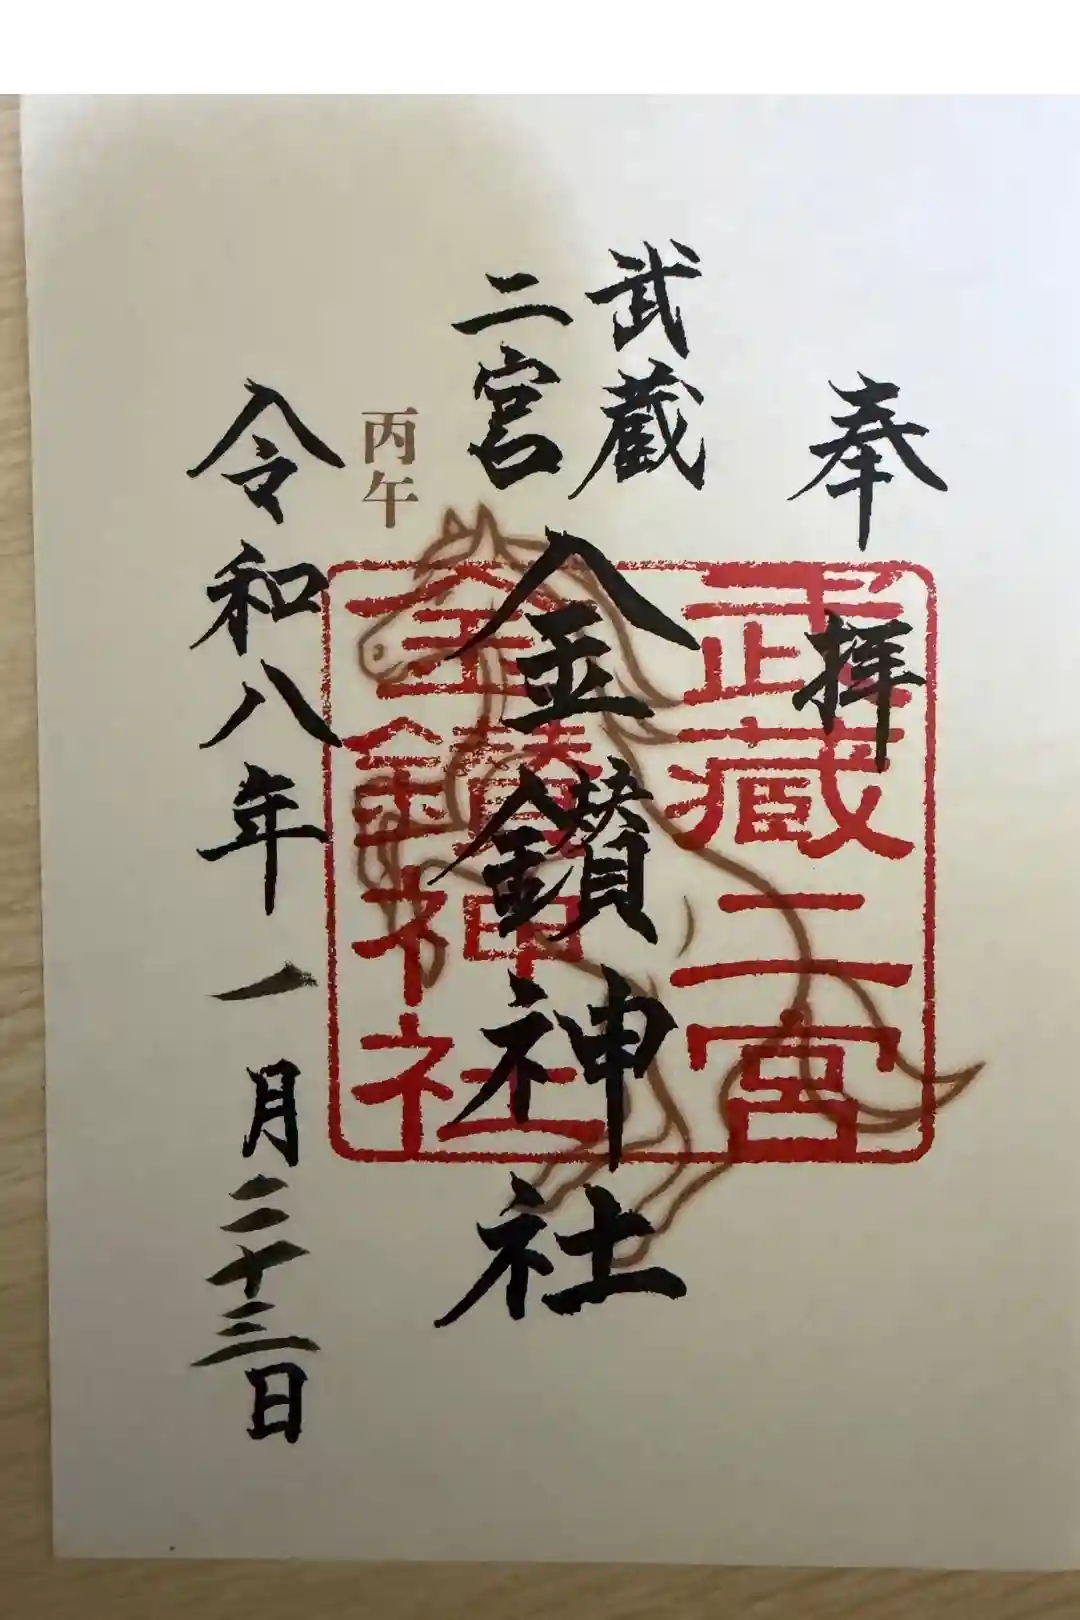 奉拝
武蔵
二宮
金鑚神社
武蔵二宮
金鑚神社
丙午
令和八年一月二十三日